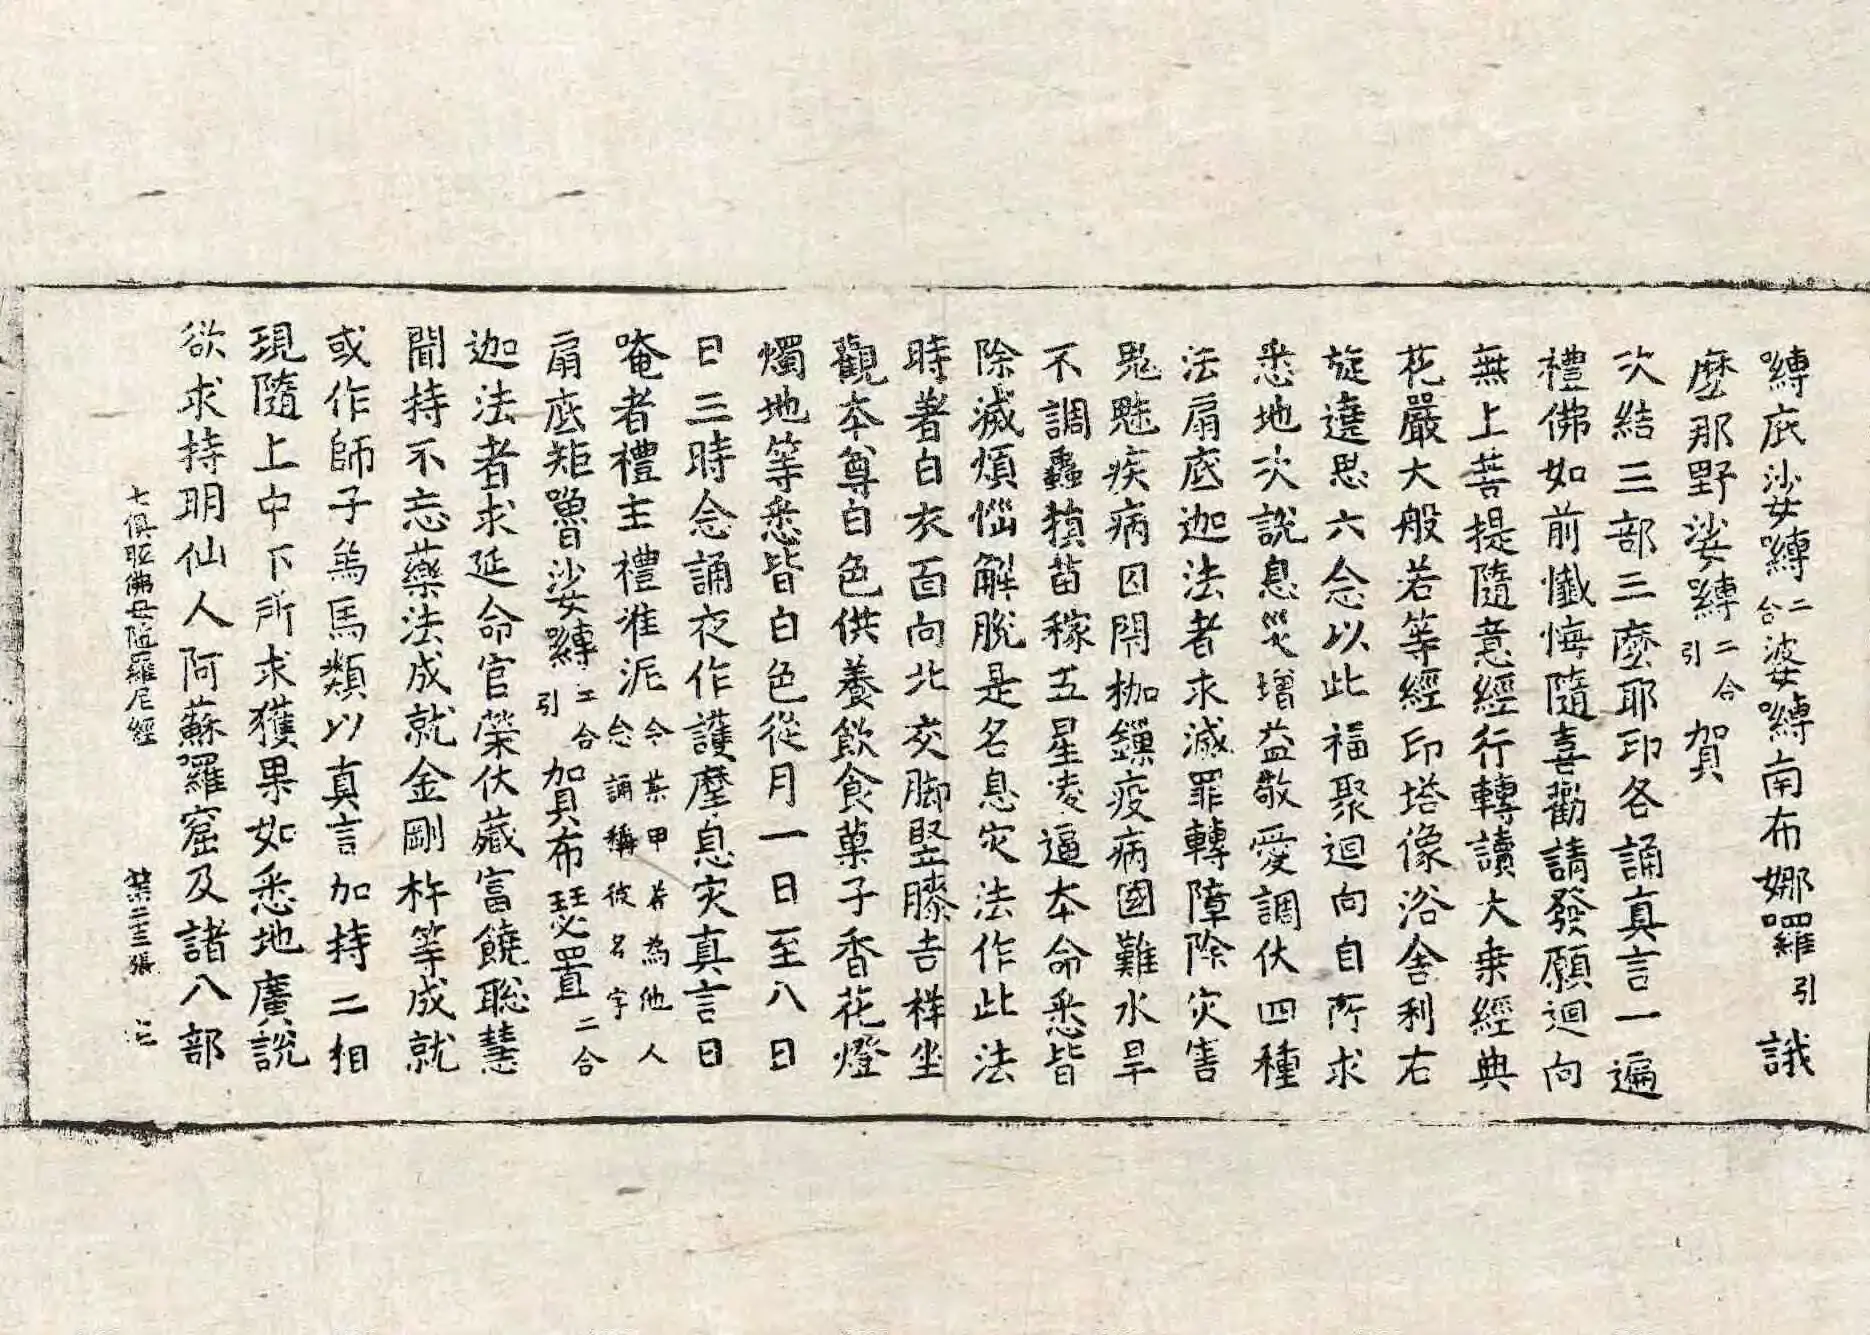 嚩底娑嚩二合婆嚩南布娜囉引誐
麽那野娑嚩二合引賀
次結三部三麽耶印各誦真言一遍
禮佛如前懺悔隨喜勸請發願迴向
無上菩提隨意經行轉讀大乗經典
花嚴大般若等經印塔像浴舍利右
旋遶思六念以此福聚迴向自所求
悉地次說息災增益敬愛調伏四種
法扇底迦法者求滅罪轉障除灾害
鬼魅疾病囚閇枷鏁疫病國難水旱
不調蟲損苗稼五星凌逼本命悉皆
除滅煩惱解脫是名息灾法作此法
時著白衣面向北交脚竪膝吉祥坐
觀本尊白色供養飲食菓子香花燈
燭地等悉皆白色從月一日至八日
日三時念誦夜作護摩息灾真言曰
唵者禮主禮准泥令某甲若為他人念誦稱彼名字
扇底矩嚕娑嚩二合引賀布瑟置二合
迦法者求延命官榮伏藏富饒聡慧
聞持不忘藥法成就金剛杵等成就
或作師子為馬類以真言加持二相
現隨上中下所求獲果如悉地廣說
欲求持明仙人阿蘇羅窟及諸八部
七俱胝佛母陁羅尼經 第二十三張